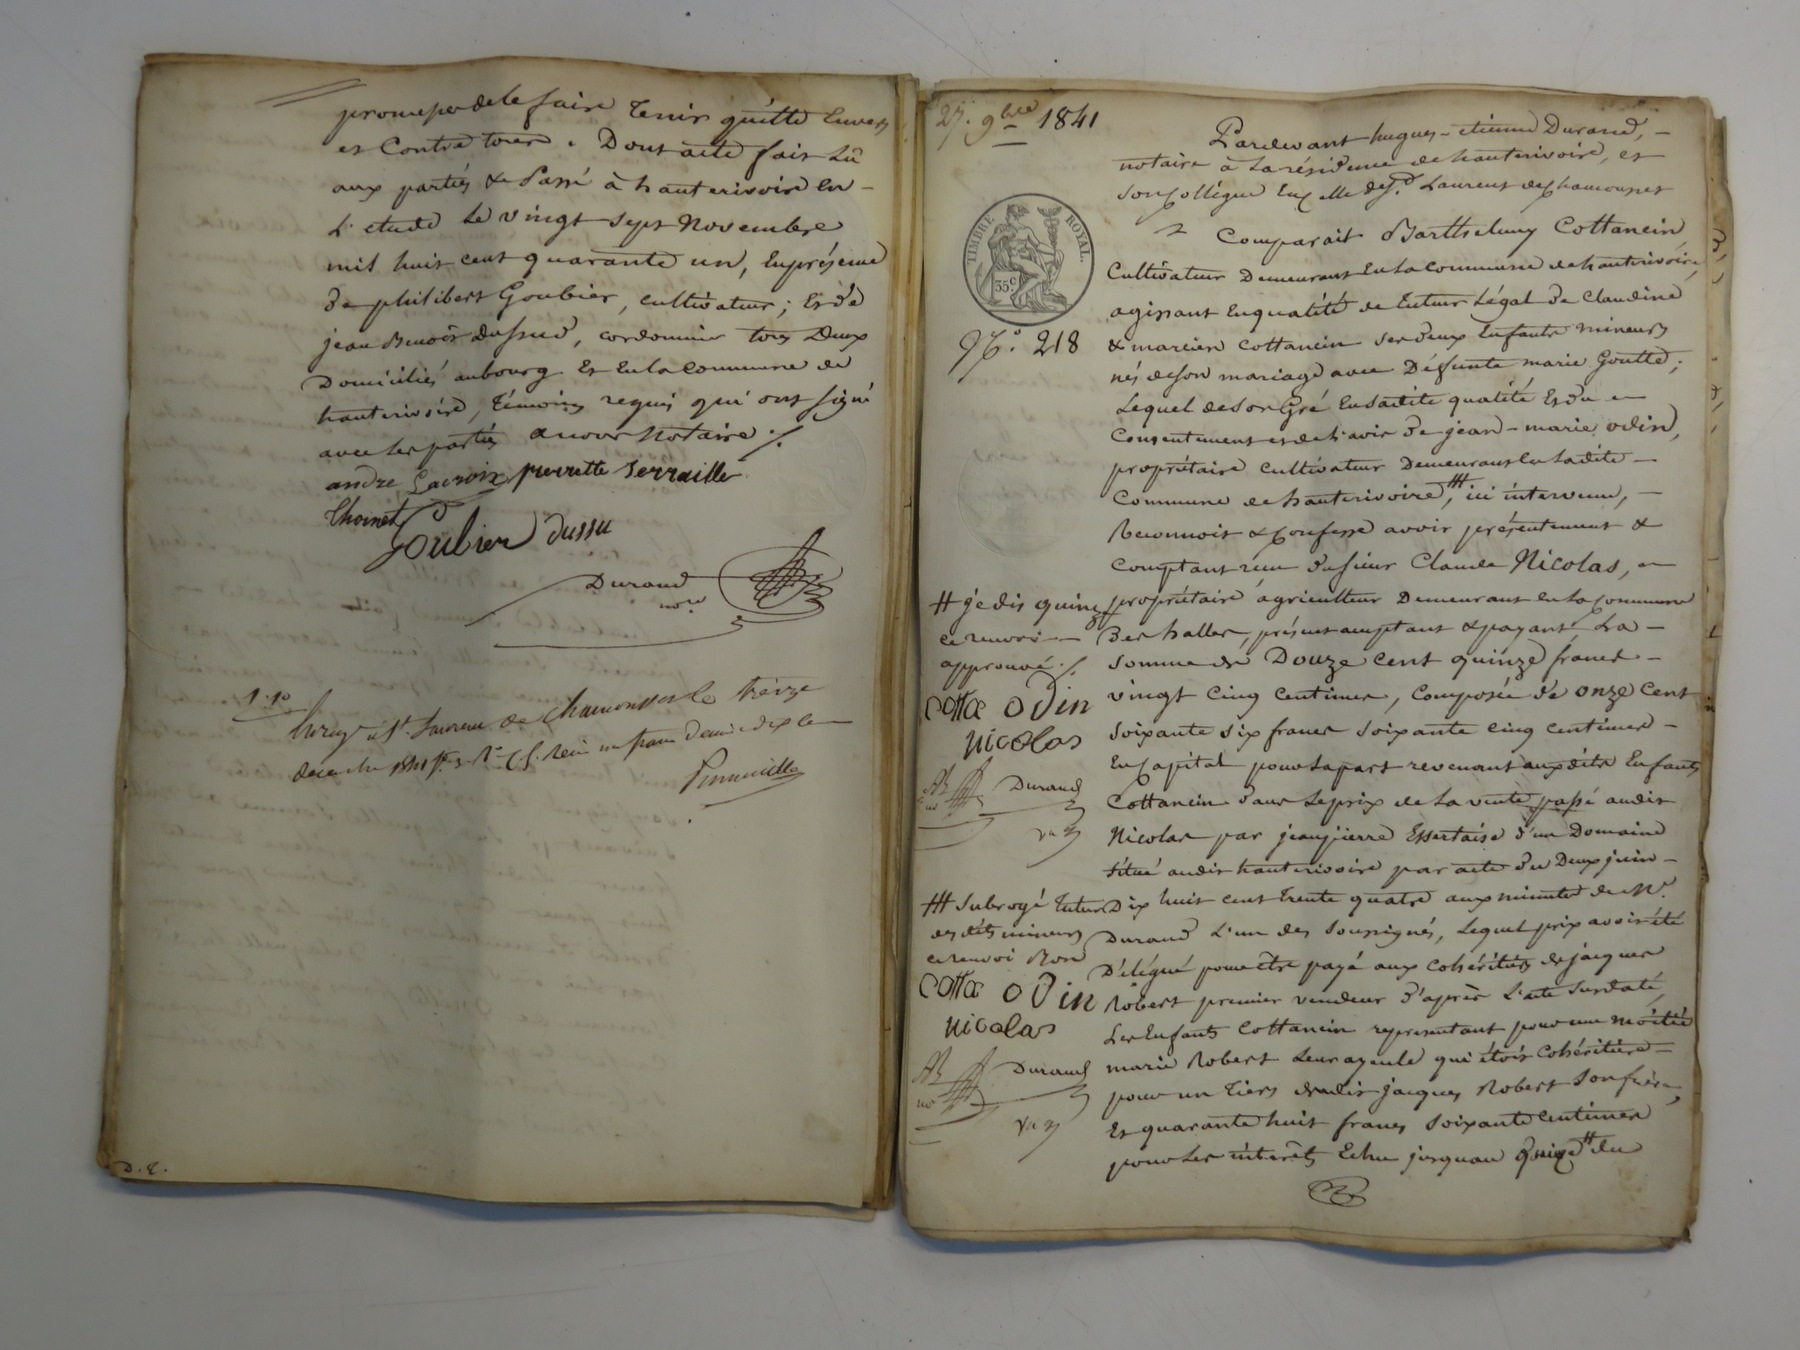 promesse de le faire tenir quitte envers
et contre tous. Dont acte fait Lû
aux parties & Passé à hauterivoire en
L'etude Le vingt sept Novembre
mil huit cent quarante un, En présence
De philibert Goubier, cultivateur; Et De
jean Benoit Dussud, cordonnier tous Deux
Domiciliés au bourg Et En la commune de
hauterivoire, Témoins requis qui ont signé
avec les parties a nous Notaire ./.
andre Lacroix pierrette Serraille
Thoinet Goubier dussu
Durand
nore
Enregé à St. Laurent de Chamousset le treize
décembre 1841 reçu un franc dix
D. E.
27. 9bre 1841
Pardevant hugues-etienne Durand, -
notaire à La résidence de hauterivoire, et
son Collégue En celle de St. Laurent de Chamousset
Comparait Barthelemy Cottancin
Cultivateur Demeurant En la Commune de hauterivoire,
agissant En qualité de Tuteur Légal de Claudine
& marcien Cottancin ses Deux Enfants mineurs
nés de son mariage avec Défunte marie Goutte;
Lequel de son Gré En sadite qualité Et Du -
Consentement et de L'avis De jean-marie odin,
propriétaire Cultivateur Demeurant En Ladite -
Commune de hauterivoire, ⧻ ici intervenu, -
Reconnoit & Confesse avoir présentement &
Comptant reçu du sieur Claude Nicolas, -
propriétaire agriculteur Demeurant En La Commune
Des halles, présent comptant & payant, La -
Somme de Douze cent quinze francs -
vingt cinq centimes, Composée de onze Cent
soixante six francs soixante cinq centimes -
En Capital pour La part revenant auxdits Enfants
Cottancin Dans Le prix de La vente passé audit
Nicolas par jeanpierre Essertaise D'un Domaine
situé audit hauterivoire par acte du Deux juin -
Dix huit cent trente quatre aux minutes de Me.
Durand L'un des soussignés, Lequel prix avoit été
Délégué pour être payé aux Cohéritiers de jacques
Robert premier vendeur D'après L'acte susdaté,
Les Enfants Cottancin representant pour une moitié
marie Robert Leur ayeule qui étoit Cohéritière -
pour un tiers dudit jacques Robert son frère,
Et quarante huit francs soixante Centimes
pour Les intérêts Echu jusquau quinze # du
TIMBRE ROYAL.
35 c.
No. 218
# je dis quinze
ce renvoi -
approuvé ./.
Cotta odin
Nicolas
Durand
⧻ Subrogé tuteur
des dits mineurs
ce renvoi Bon
Cotta odin
Nicolas
Durand